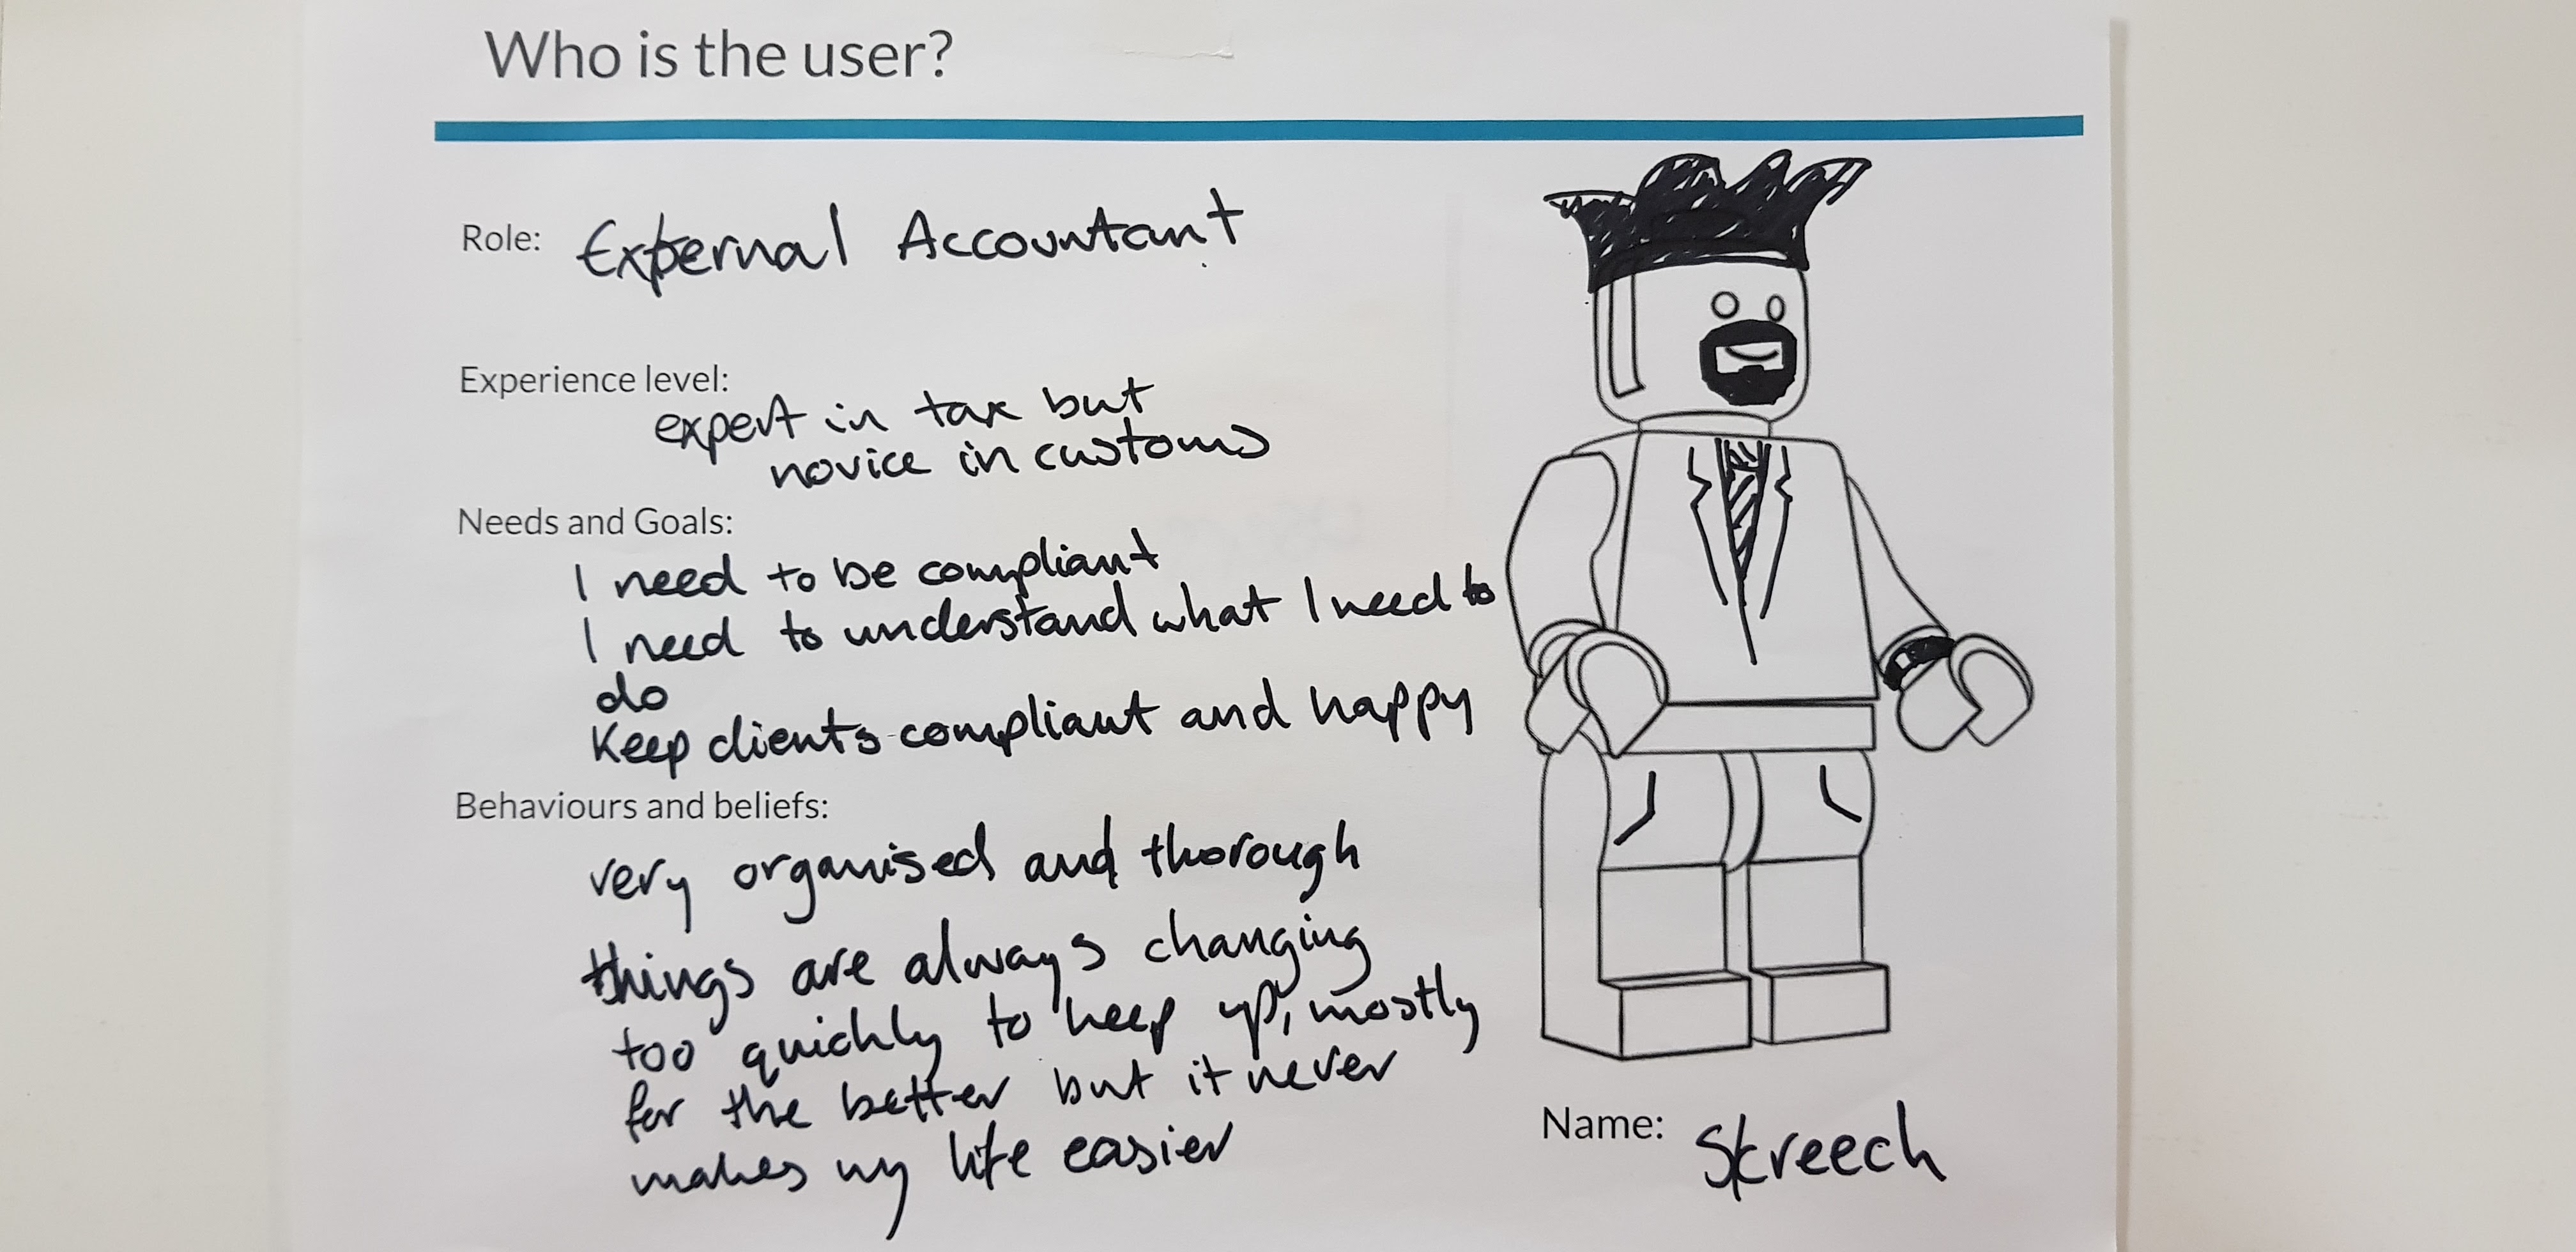 Who is the user?
Role: External Accountant
Experience level:
expert in tax but
novice in customs
Needs and Goals:
I need to be compliant
I need to understand what I need to
do
Keep clients compliant and happy
Behaviours and beliefs:
very organised and thorough
things are always changing
too quickly to keep up, mostly
for the better but it never
makes my life easier
Name: Skreech